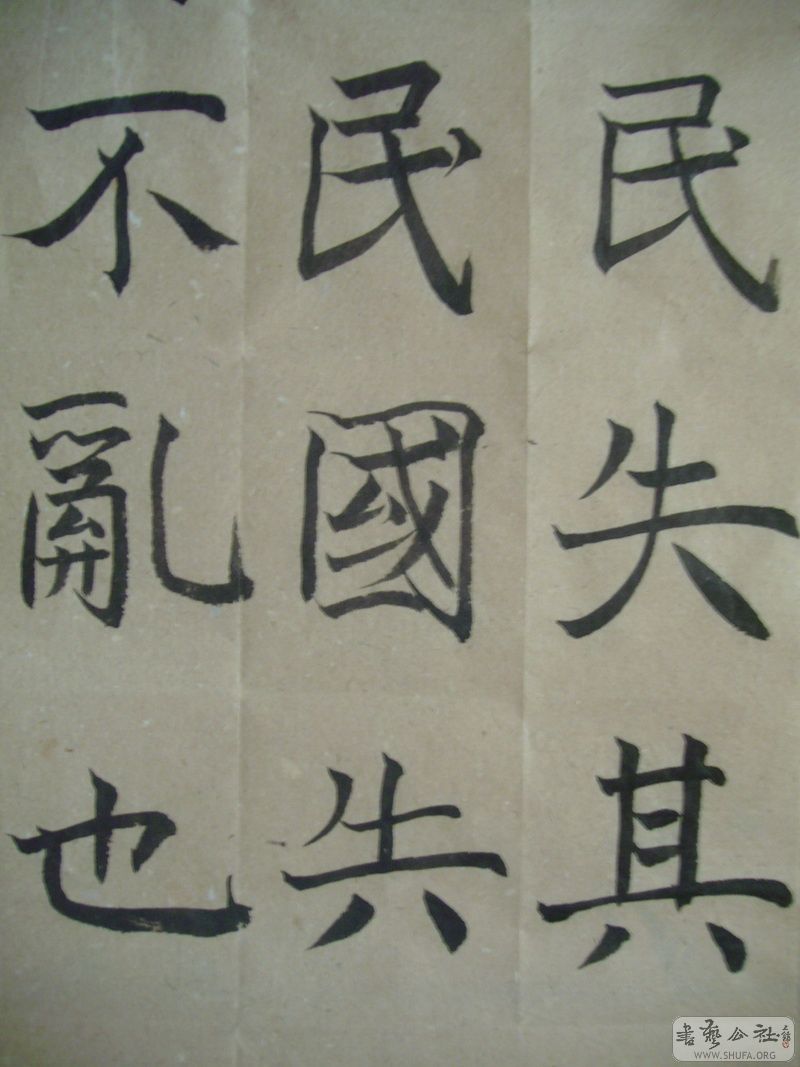 民失其
民國
不亂也
書藝公社
WWW.SHUFA.ORG